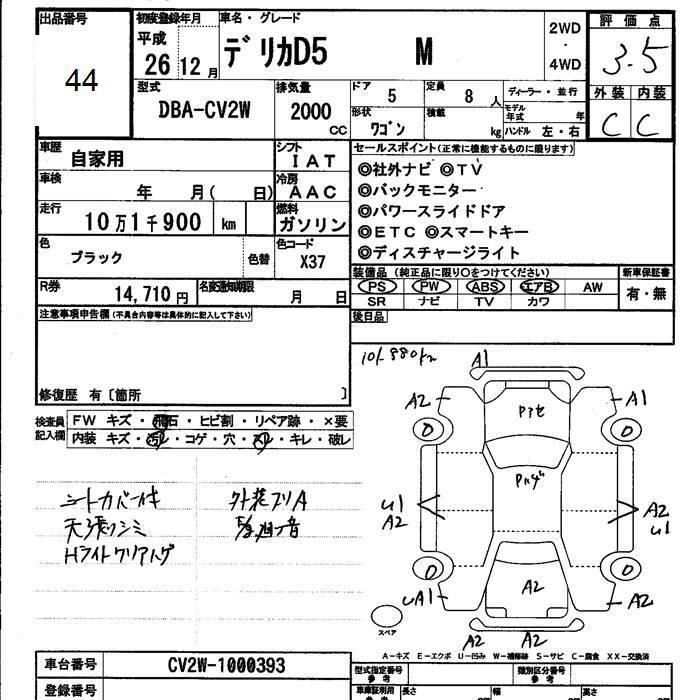 出品番号 初度登録年月 車名・グレード 評価点
44 平成 26 12 月 デリカD5 M 2WD・4WD 3.5
型式 DBA-CV2W 排気量 2000 CC ドア 5 定員 8 人 ディーラー・並行 外装 内装
形状 ワゴン 積載 kg モデル年式 年 ハンドル 左・右 C C
車歴 自家用 シフト IAT セールスポイント(正常に機能するものに限ります)
◎社外ナビ ◎TV
車検 年 月( 日) 冷房 AAC ◎バックモニター
走行 10万1千900 km 燃料 ガソリン ◎パワースライドドア
◎ETC ◎スマートキー
色 ブラック 色替 色コード X37 ◎ディスチャージライト
装備品(純正品に限り○をつけてください) 新車保証書
R券 14,710円 名変通知期限 月 日 PS PW ABS エアB AW 有・無
SR ナビ TV カワ
注意事項申告欄(不具合内容等は具体的に記入して下さい) 後日品
修復歴 有〔箇所 〕
検査員記入欄 FW キズ・飛石・ヒビ割・リペア跡・×要
内装 キズ・汚レ・コゲ・穴・スレ・キレ・破レ
シートカバー付 外装フリA
天張シミ
Hライトクリアハゲ
A1
A2 A1
U1 A2 A2 U1
A2
UA1 A2
A2 A2
スペア
A-キズ E-エクボ U-凹み W-補修跡 S-サビ C-腐食 XX-交換済
車台番号 CV2W-1000393 型式指定番号 参考 類別区分番号 参考
登録番号 車車証明用 参考 長さ 幅 高さ